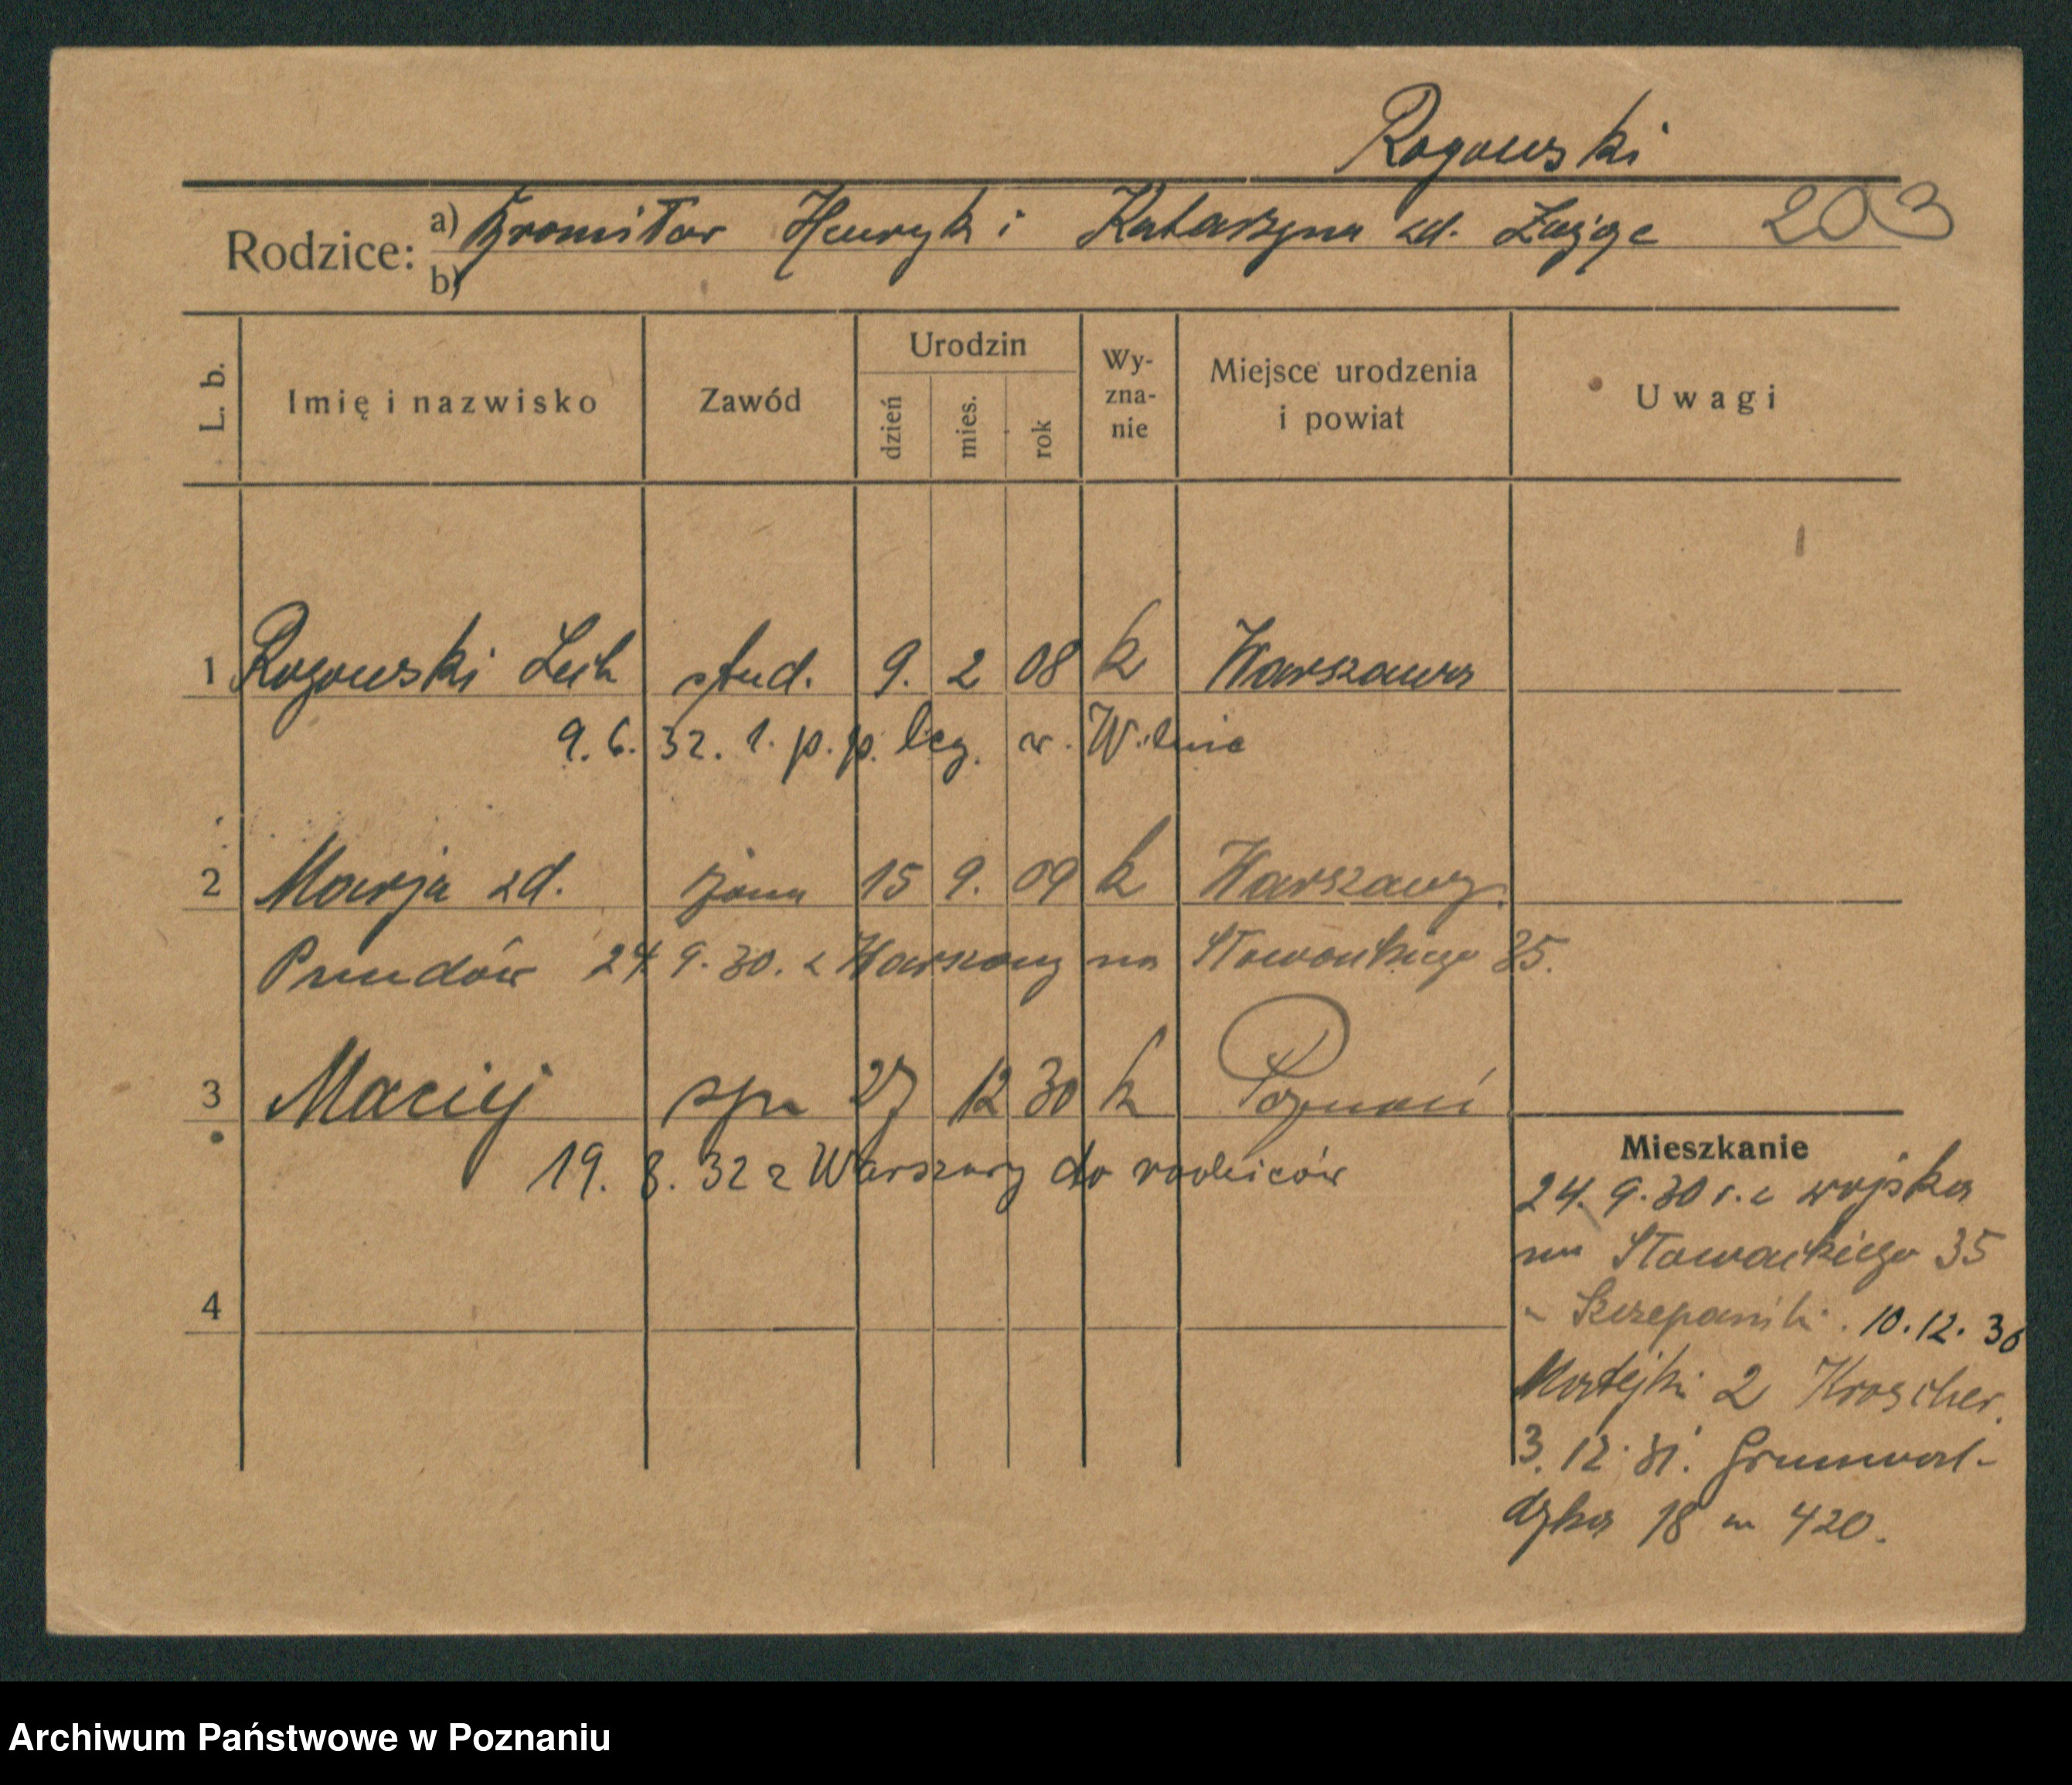 Rogowski
203
Rodzice: a) Bronisław Henryk i Katarzyna zd. Zając
b)
L. b. Imię i nazwisko Zawód Urodzin dzień mies. rok Wy-zna-nie Miejsce urodzenia i powiat Uwagi
1 Rogowski Lech stud. 9. 2 08 k Warszawa
9. 6. 32. 1. p. p. leg. w. Wilnie
2 Marja zd. żona 15 9. 09 k Warszawy.
24 9. 30. z Warszawy na Słowackiego 35.
3 Maciej syn 27 12 30 k Poznań
19. 8. 32 z Warszawy do rodziców
4
Mieszkanie
24. 9. 30 r. z wojska
na Słowackiego 35
10. 12. 30
Matejki 2
3. 12. 31. Grunwal-
dzka 18 m 420.
Archiwum Państwowe w Poznaniu